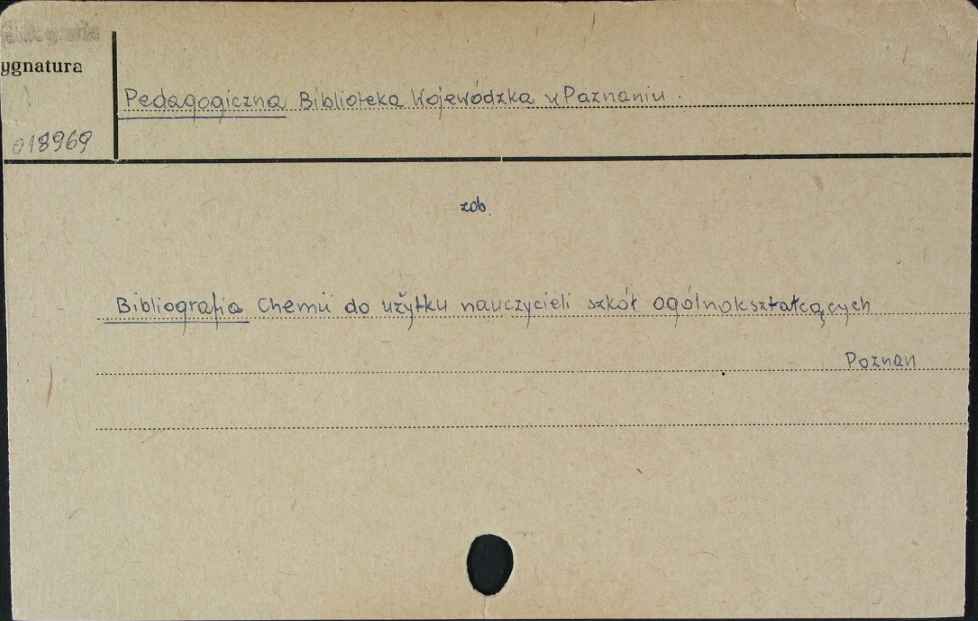 ygnatura
Pedagogiczna Biblioteka Wojewódzka w Poznaniu.
018969
zob.
Bibliografia Chemii do użytku nauczycieli szkół ogólnokształcących
Poznan